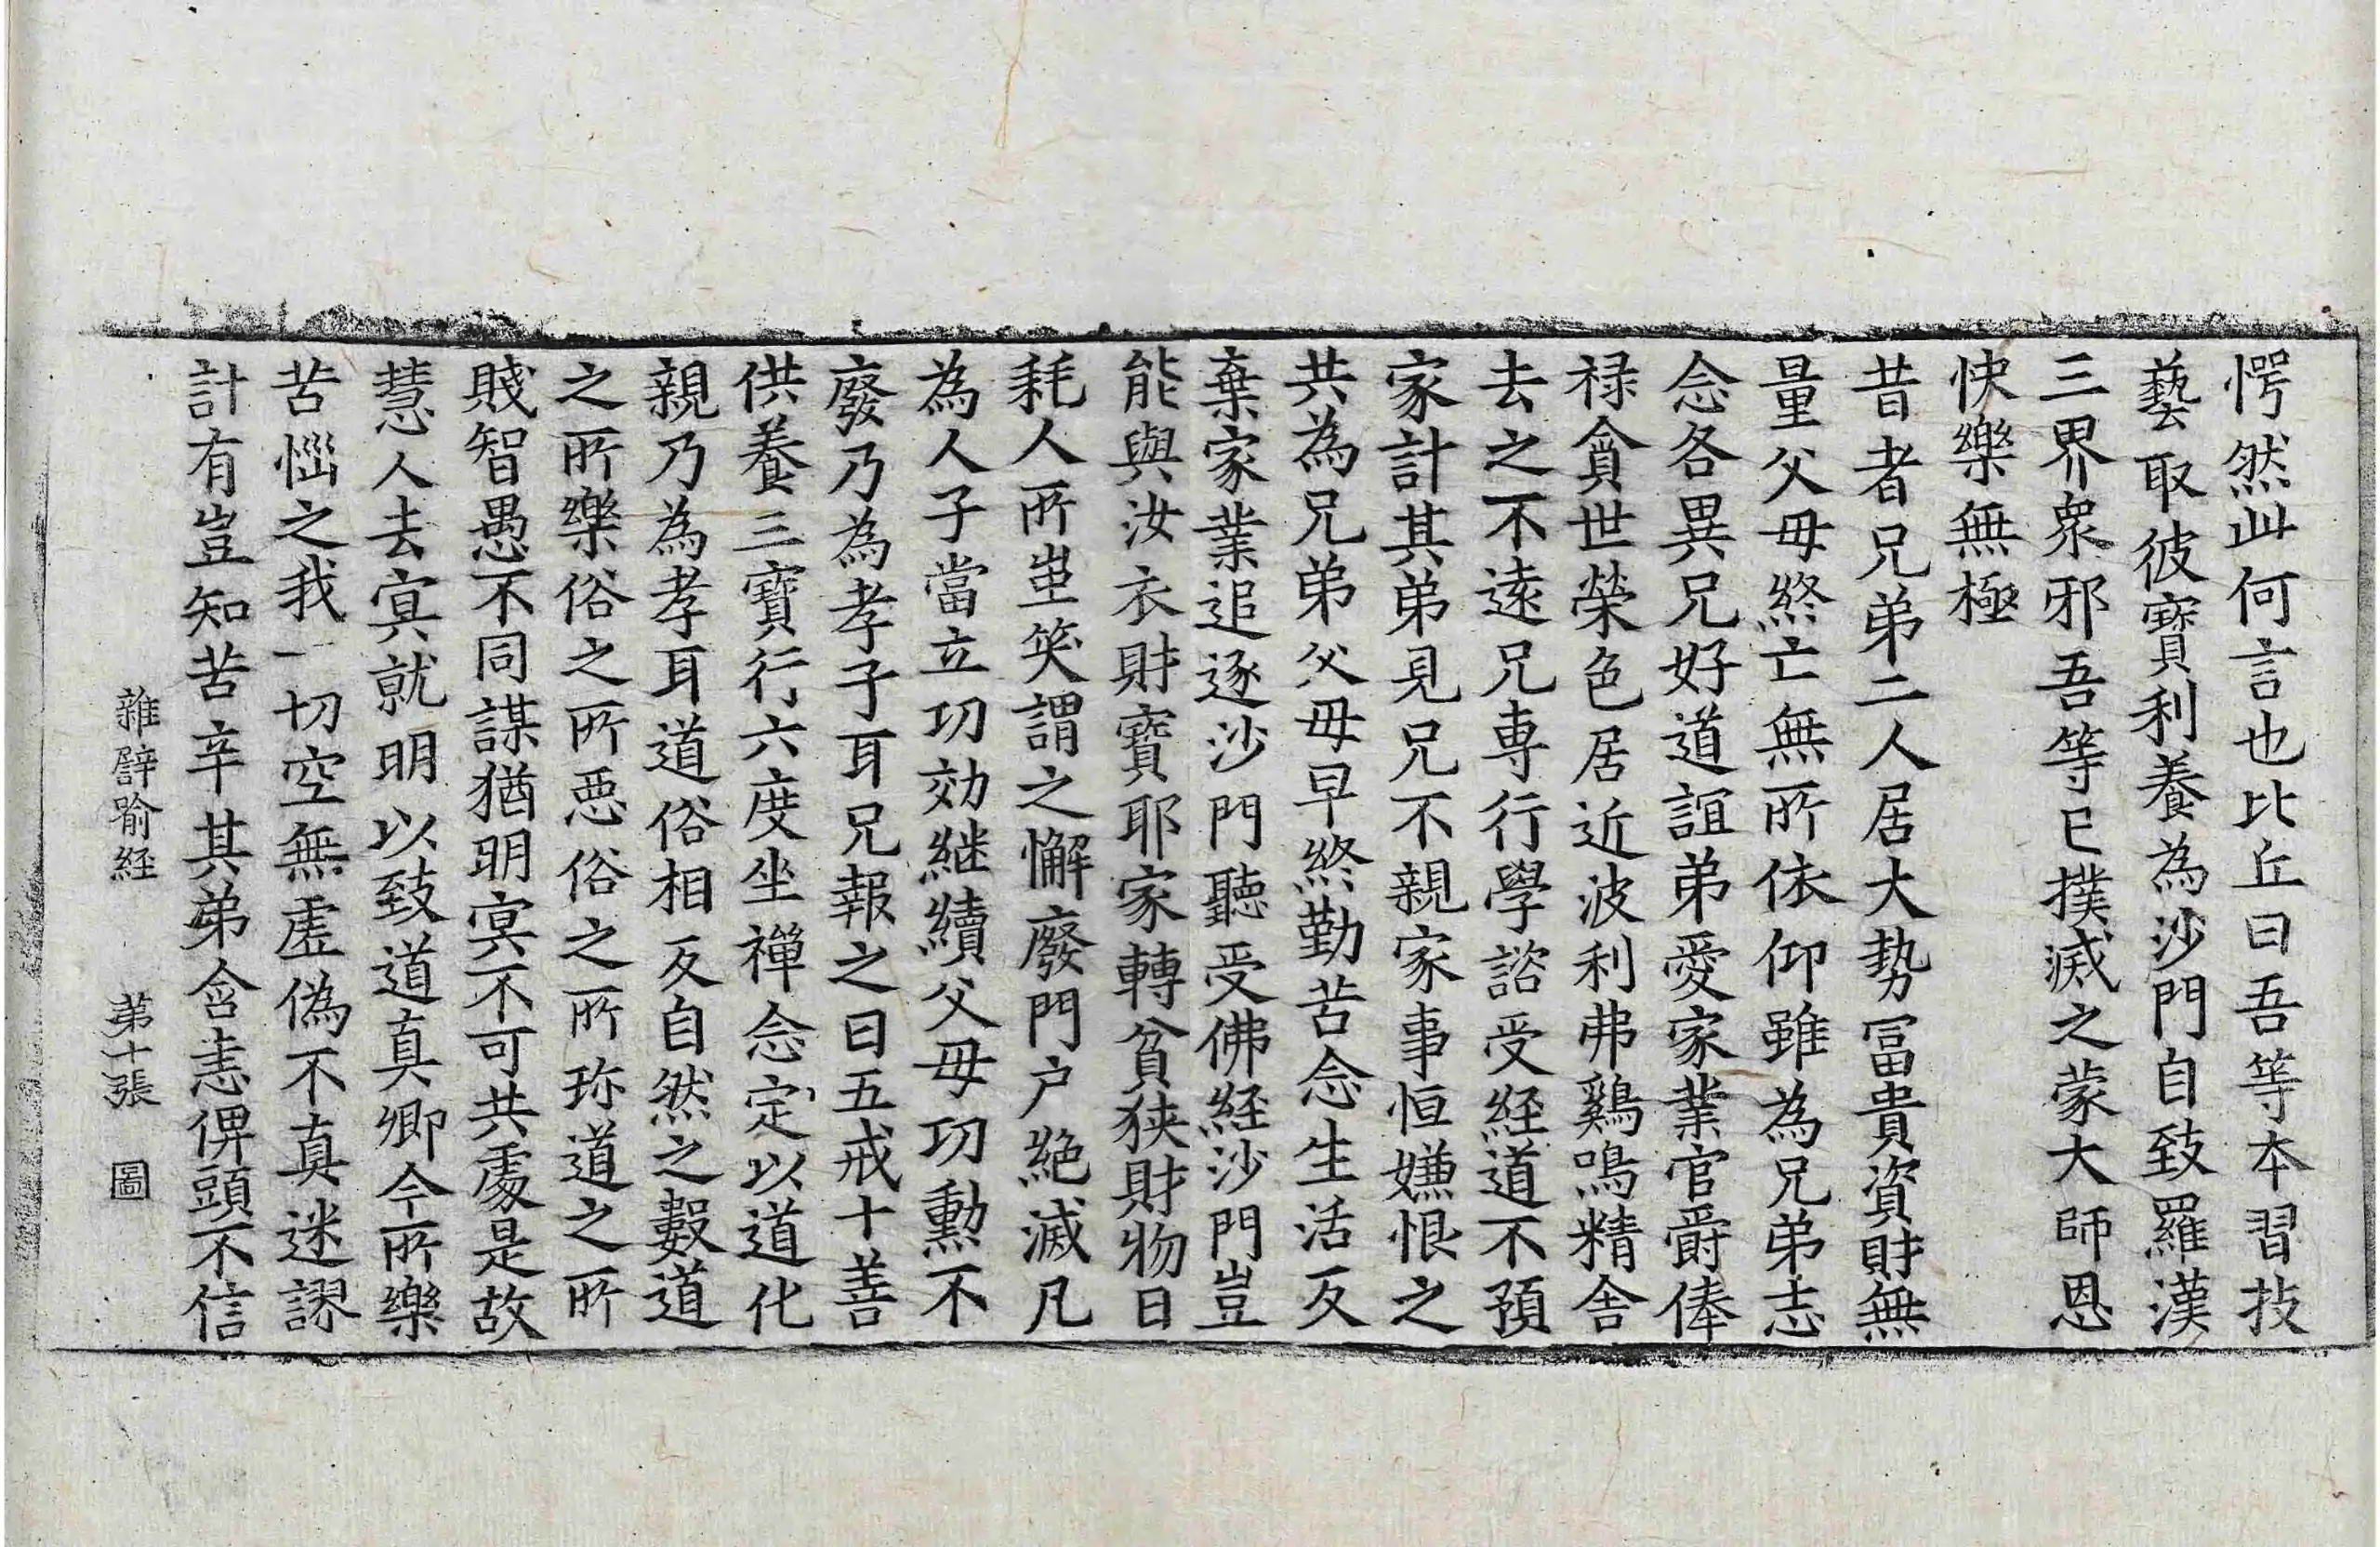 愕然此何言也比丘曰吾等本習技
藝取彼寳利養為沙門自致羅漢
三界衆邪吾等已撲滅之蒙大師恩
快樂無極
昔者兄弟二人居大勢冨貴資財無
量父母終亡無所依仰雖為兄弟志
念各異兄好道誼弟愛家業官爵俸
禄貪世榮色居近波利弗鷄鳴精舎
去之不遠兄専行學諮受経道不預
家計其弟見兄不親家事恒嫌恨之
共為兄弟父母早終勤苦念生活反
棄家業追逐沙門聽受佛経沙門豈
能與汝衣財寳耶家轉貧狭財物日
耗人所蚩笑謂之懈廢門户絶滅凡
為人子當立功効継續父母功勲不
廢乃為孝子耳兄報之曰五戒十善
供養三寳行六度坐禪念定以道化
親乃為孝耳道俗相反自然之數道
之所樂俗之所惡俗之所珎道之所
賤智愚不同謀猶明冥不可共處是故
慧人去冥就明以致道真卿今所樂
苦惱之我一切空無虚偽不真迷謬
計有豈知苦辛其弟含恚俾頭不信
雜譬喻経 第十張 圖